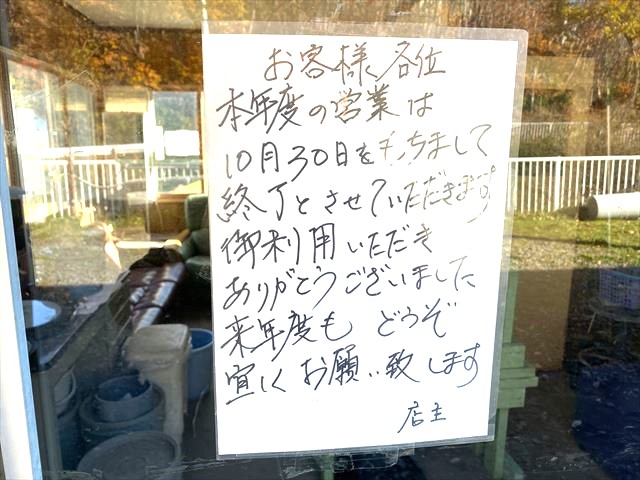 お客様各位
本年度の営業は
10月30日をもちまして
終了とさせていただきます
御利用いただき
ありがとうございました
来年度も どうぞ
宜しくお願い致します
店主